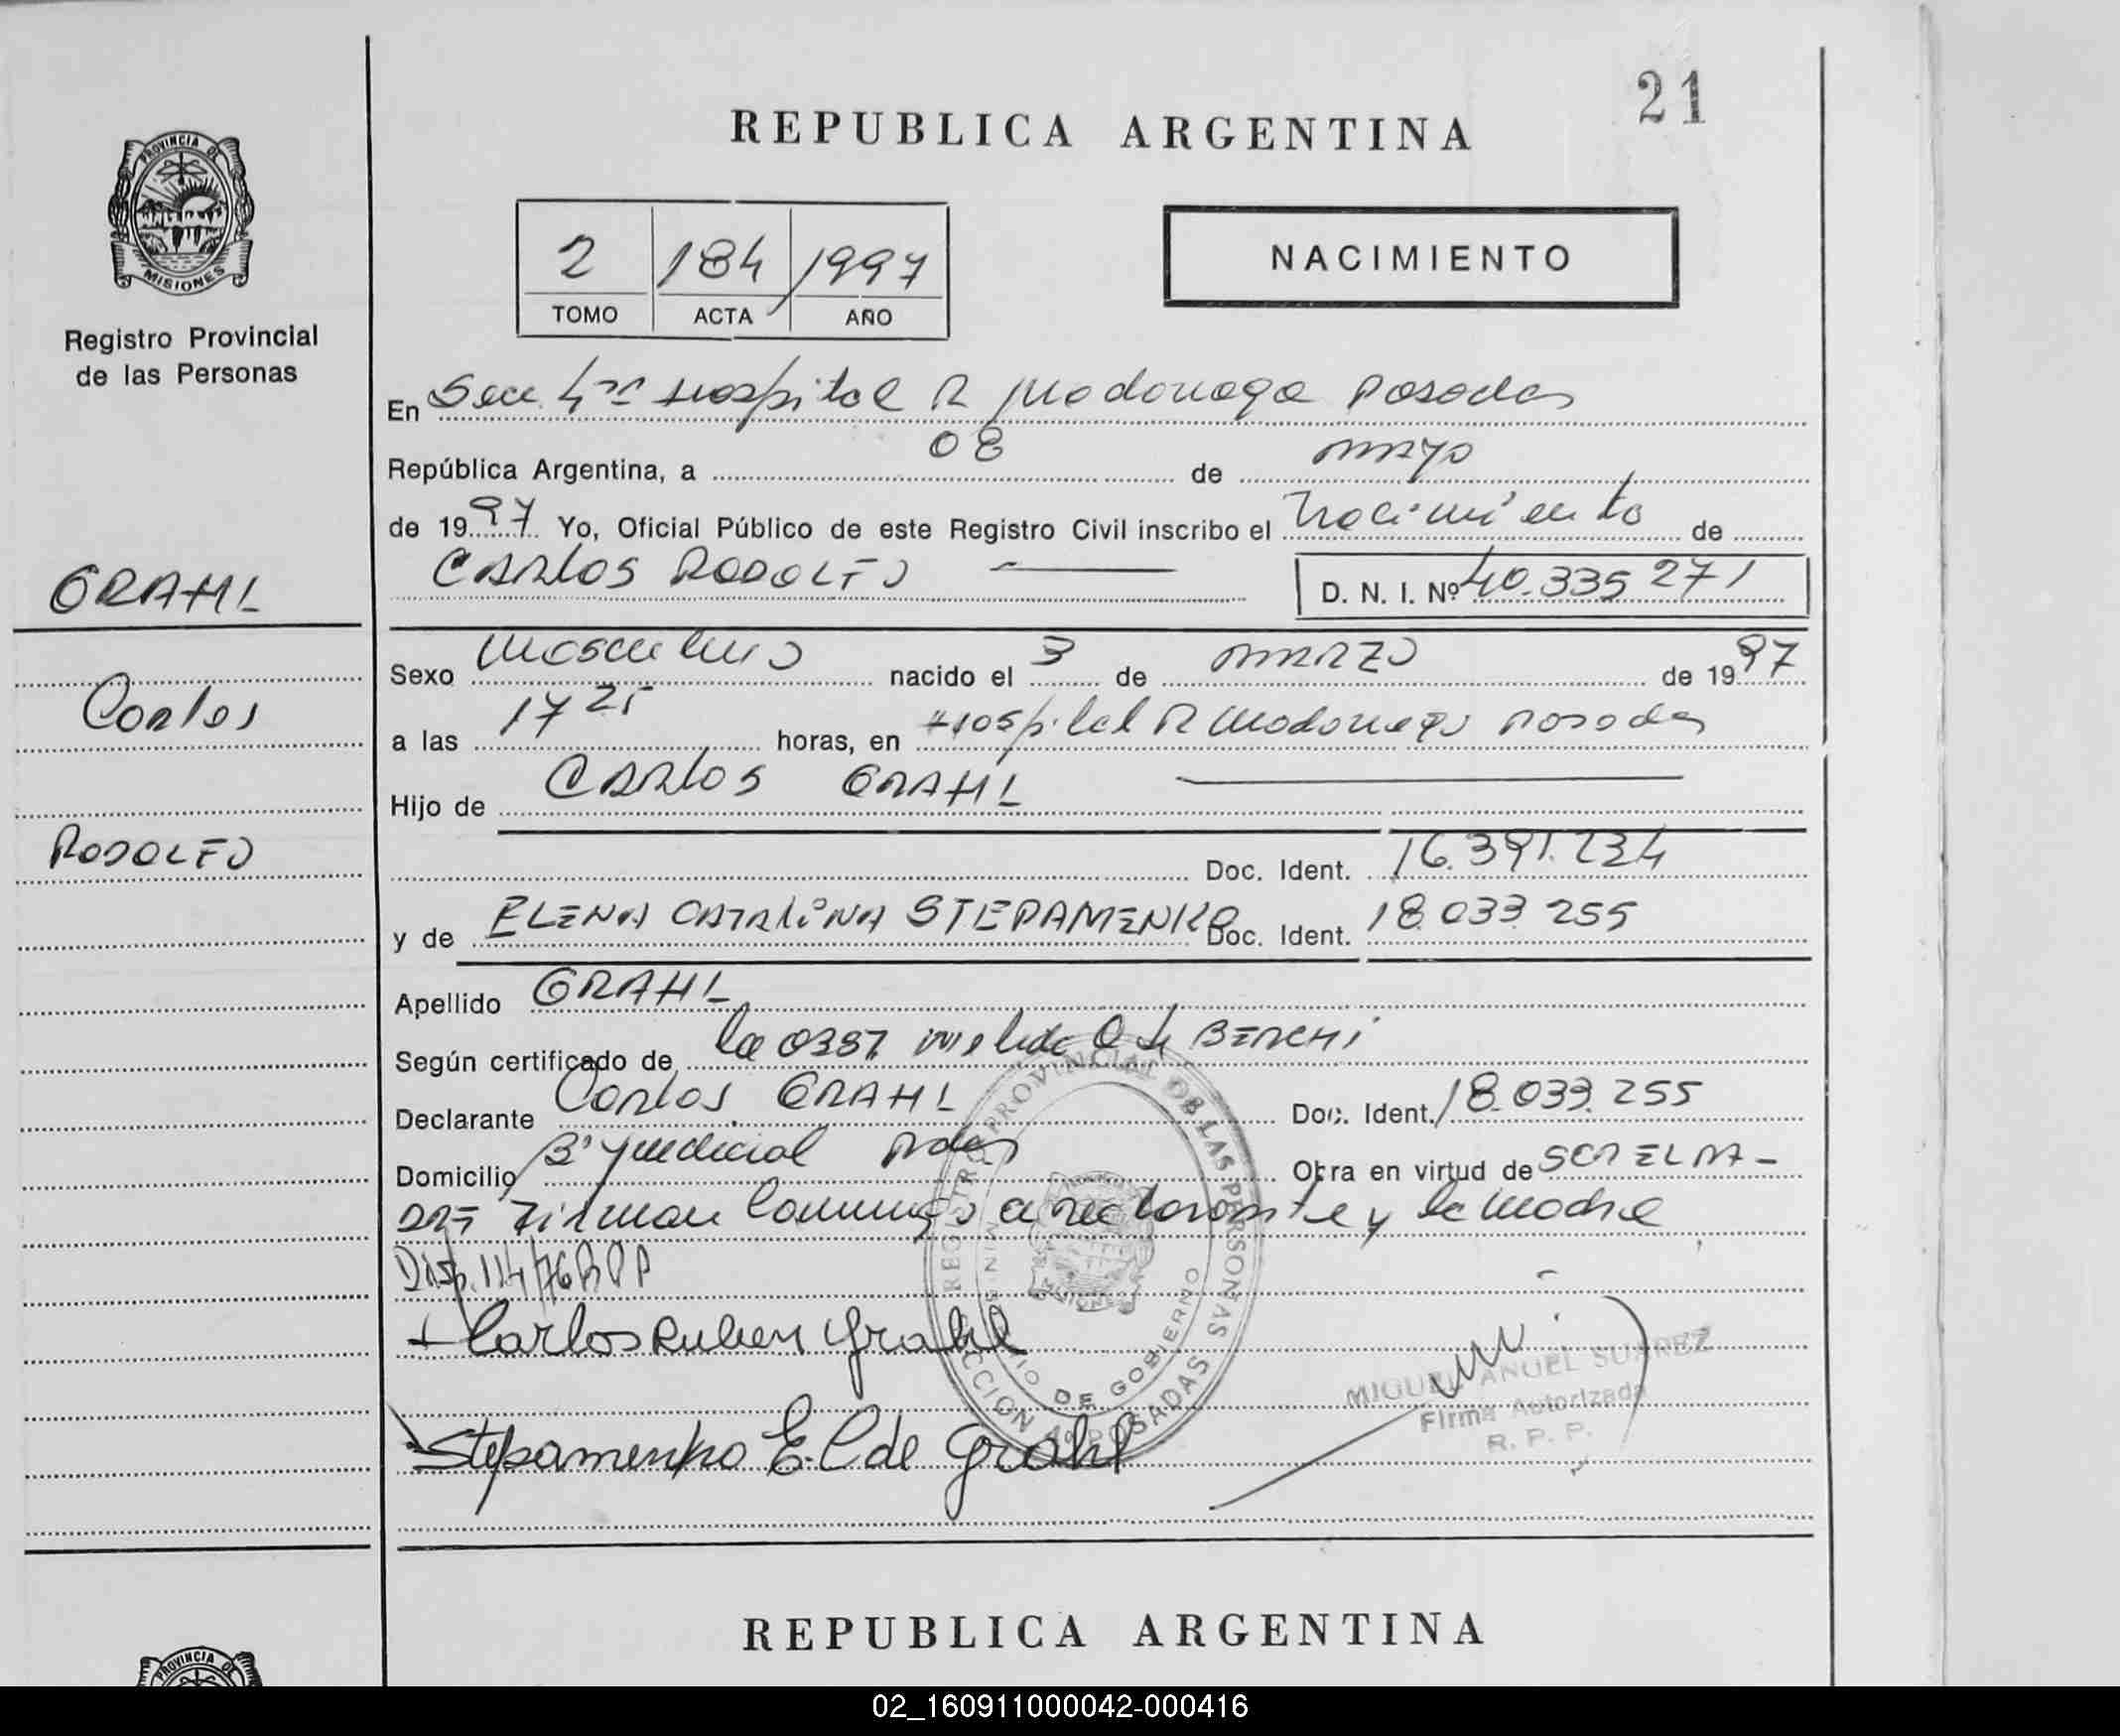 21
REPUBLICA ARGENTINA
PROVINCIA DE
MISIONES
Registro Provincial
de las Personas
2 184 1997
TOMO ACTA AÑO
NACIMIENTO
En Secc 4ta Hospital R Madariaga Posadas
República Argentina, a 08 de mayo
de 1997 Yo, Oficial Público de este Registro Civil inscribo el Nacimiento de
CARLOS RODOLFO D. N. I. Nº 40.335 271
GRAHL
Carlos
RODOLFO
Sexo Masculino nacido el 3 de MARZO de 1997
a las 17 25 horas, en Hospital R Madariaga Posadas
Hijo de CARLOS GRAHL
Doc. Ident. 16.391.234
y de ELENA CATALINA STEPAMENKO Doc. Ident. 18 033 255
Apellido GRAHL
Según certificado de la 0387
Declarante Carlos GRAHL Doc. Ident. 18.033.255
Domicilio Bº Judicial Pdas Obra en virtud de SER EL PA-
DRE Firman conmigo declarante y la madre
Disp. 114/76 RPP
Carlos Ruben Grahl
Stepamenko E. C de Grahl
REGISTRO PROVINCIAL DE LAS PERSONAS
MINISTERIO DE GOBIERNO
SECCION 4º POSADAS
MIGUEL ANGEL SUAREZ
Firma Autorizada
R. P. P.
REPUBLICA ARGENTINA
PROVINCIA DE
02_160911000042-000416